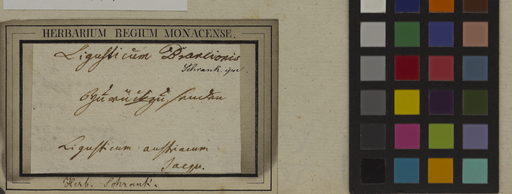 HERBARIUM REGIUM MONACENSE.
Ligusticum
Schrank
Ligusticum austriacum
Jacqu.
Herb. Schrank.